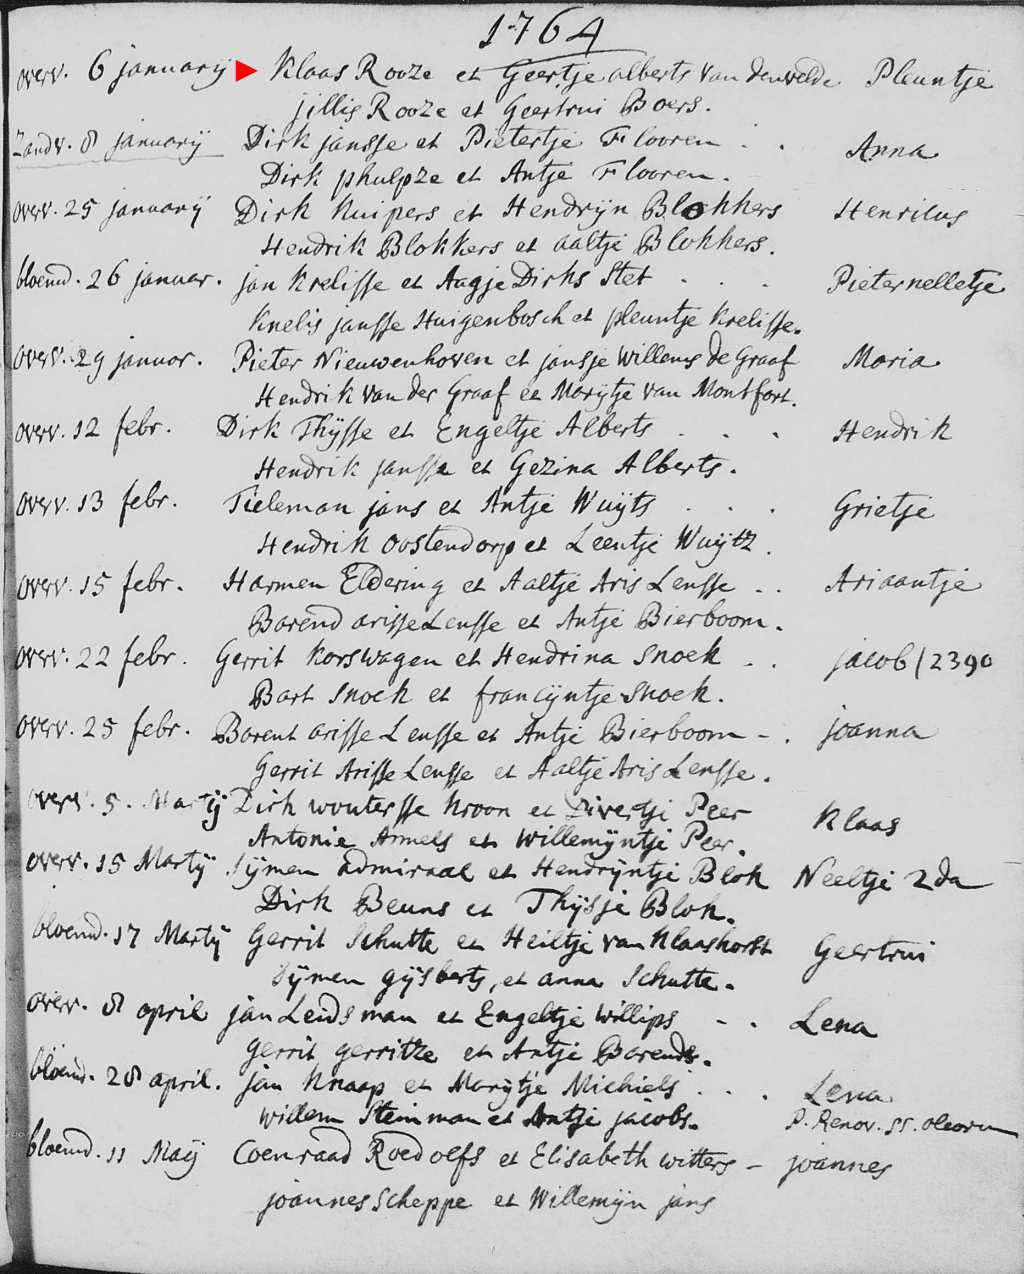 1764
overv. 6 januarij Klaas Rooze et Geertje alberts van den velde Pleuntje
jillis Rooze et Geertrui Boers.
Zandv. 8 januarij Dirk jansse et Pietertje Flooren . . Anna
Dirk phulpze et Antje Flooren.
overv. 25 januarij Dirk Kuipers et Hendrijn Blokkers Henricus
Hendrik Blokkers et aaltje Blokkers.
bloemd. 26 januar. jan Krelisse et Aagje Dirks Stet . . . Pieternelletje
Knelis jansse Huigenbosch et pleuntje Krelisse.
overv. 29 januar. Pieter Nieuwenhoven et jansje willems de Graaf Maria
Hendrik van der Graaf et Marijtje van Montfort.
overv. 12 febr. Dirk Thijsse et Engeltje Alberts . . . Hendrik
Hendrik jansse et Gezina Alberts.
overv. 13 febr. Tieleman jans et Antje Wuijts . . . Grietje
Hendrik Oostendorp et Leentje Wuijtz.
overv. 15 febr. Harmen Eldering et Aaltje Aris Lensse . . Ariaantje
Barend arisse Lensse et Antje Bierboom.
overv. 22 febr. Gerrit Korswagen et Hendrina Snoek . . jacob (2390
Bart Snoek et francijntje Snoek.
overv. 25 febr. Barent arisse Lensse et Antje Bierboom - . joanna
Gerrit Arisse Lensse et Aaltje Aris Lensse.
overv. 5. Martij Dirk woutersse Kroon et Divertje Peer Klaas
Antonie Armels et willemijntje Peer.
overv. 15 Martij Sijmen admiraal et Hendrijntje Blok Neeltje 2da
Dirk Beuns et Thijsje Blok.
bloemd. 17 Martij Gerrit Schutte et Heiltje van Klaashorst Geertrui
Dijmen gijsberts, et anna Schutte.
overv. 8 april jan Leidsman et Engeltje willips - . Lena
gerrit gerritze et Antje Barends.
bloemd. 28 april. jan Knaap et Marijtje Michiels . . . Lena
willem Steinman et Antje jacobs. P. Renov. SS. oleorum
bloemd. 11 Maij Coenraad Roedolfs et Elisabeth witters - joannes
joannes Scheppe et Willemijn jans